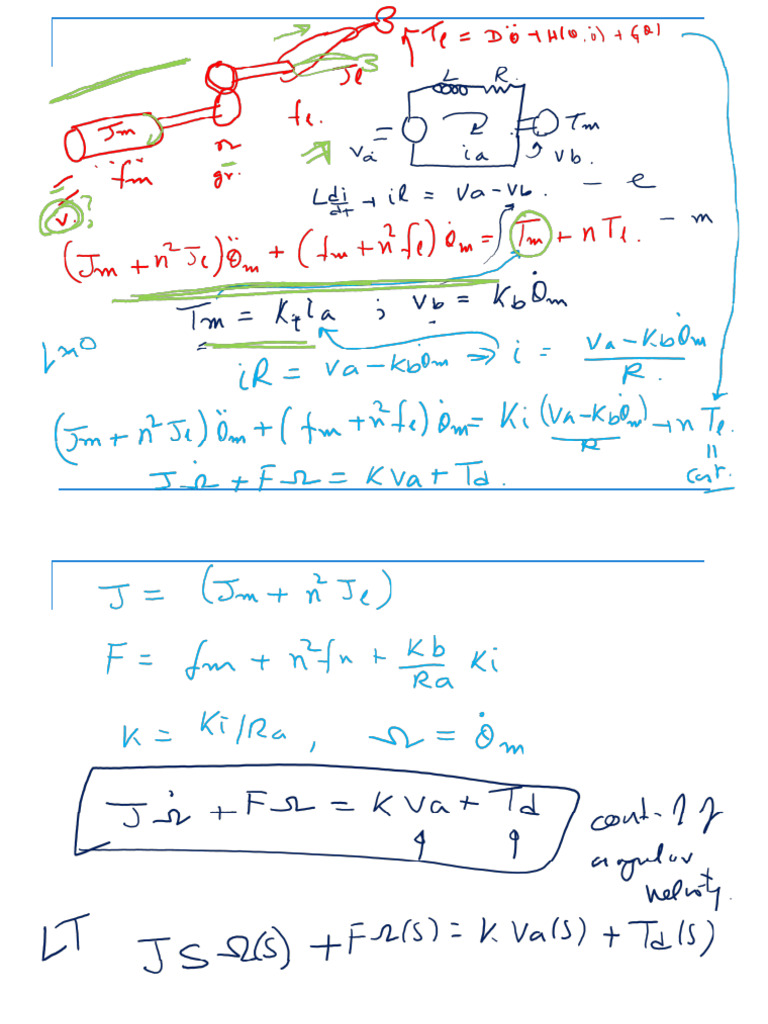 T_l = Dθ̈ + H(θ,θ̇) + G(θ)
J_l
J_m
f_l.
L R.
V_a = i_a T_m
v_b.
f_m gr.
v. ?
L di/dt + iR = Va - V_b. - e
(J_m + n² J_l) θ̈_m + (f_m + n² f_l) θ̇_m = T_m + n T_l. - m
T_m = K_t i_a ; v_b = K_b θ̇_m
L≈0
iR = Va - K_b θ̇_m ⇒ i = (Va - K_b θ̇_m)/R.
(J_m + n² J_l) θ̈_m + (f_m + n² f_l) θ̇_m = Ki (Va - K_b θ̇_m)/R + n T_l.
J Ω̇ + F Ω = K Va + T_d.
J = (J_m + n² J_l)
F = f_m + n² f_n + (Kb/Ra) Ki
K = Ki/Ra, Ω = θ̇_m
J Ω̇ + F Ω = K Va + T_d
angular
velocity.
LT J S Ω(s) + F Ω(s) = K Va(s) + T_d(s)